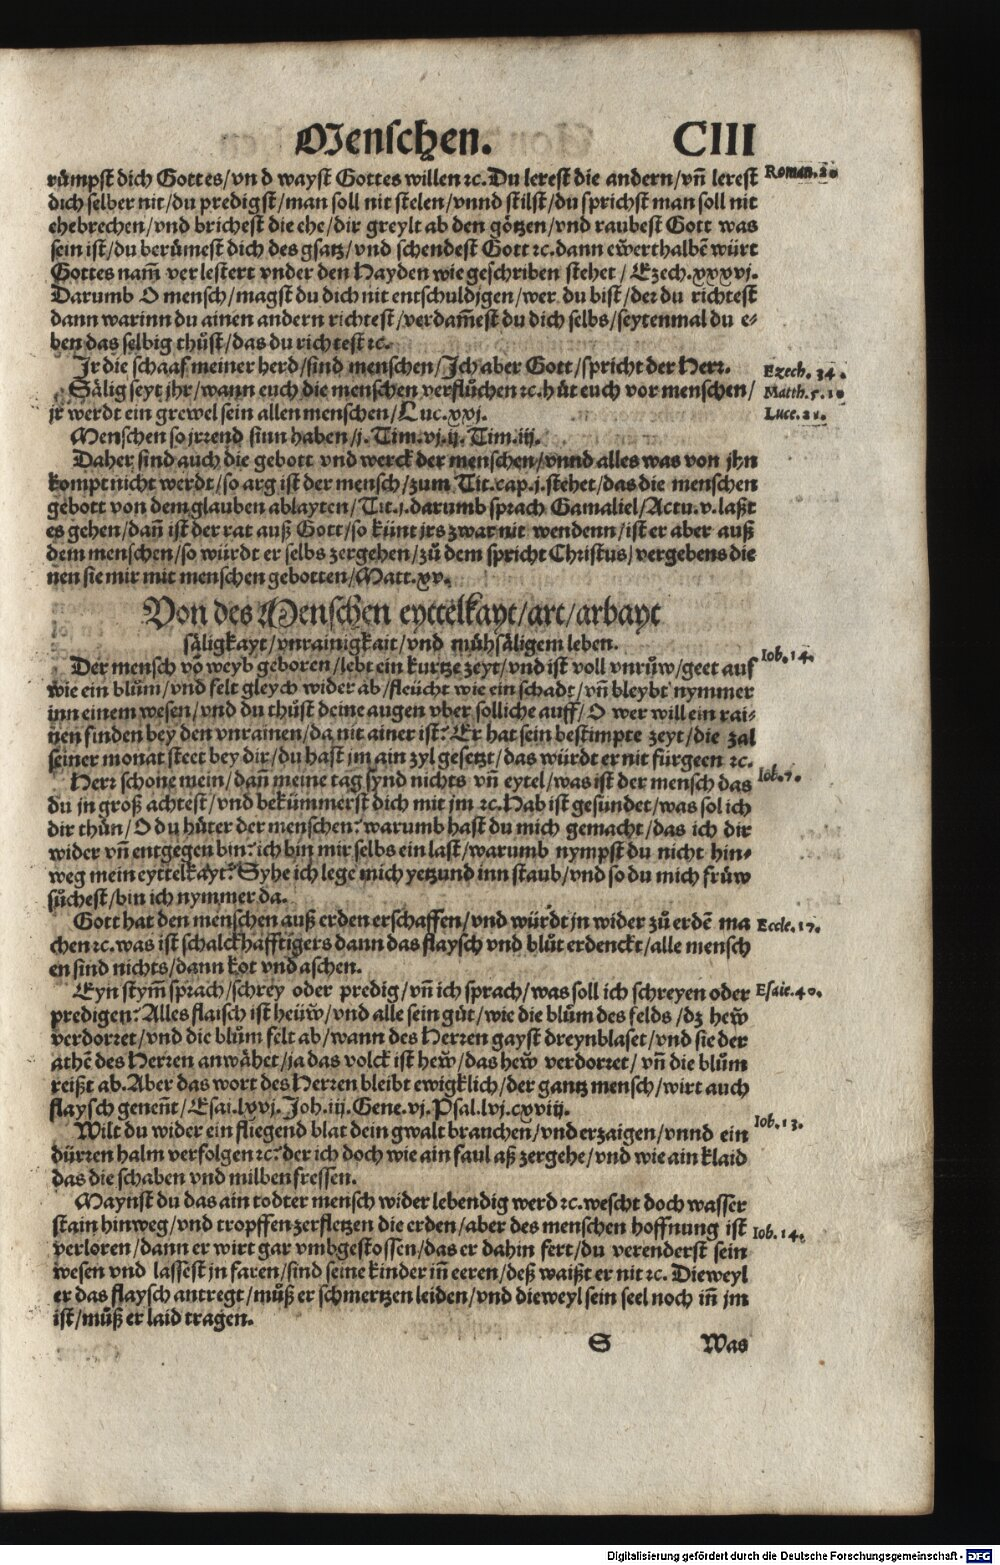 Menschen. CIII
růmpst dich Gottes/vn d wayst Gottes willen ꝛc. Du lerest die andern/vñ lerest Roman.2.
dich selber nit/du predigst/man soll nit stelen/vnnd stilst/du sprichst man soll nit
ehebrechen/vnd brichest die ehe/dir greylt ab den götzen/vnd raubest Gott was
sein ist/du berůmest dich des gsatz/vnd schendest Gott ꝛc. dann ewerthalbē würt
Gottes nam̃ verlestert vnder den Hayden wie geschriben stehet/Ezech.xxxvj.
Darumb O mensch/magst du dich nit entschuldjgen/wer du bist/der du richtest
dann warinn du ainen andern richtest/verdam̃est du dich selbs/seytenmal du e⸗
ben das selbig thůst/das du richtest ꝛc.
Jr die schaaf meiner herd/sind menschen/Jch aber Gott/spricht der Herr. Ezech.34.
Sälig seyt jhr/wann euch die menschen verflůchen ꝛc. hůt euch vor menschen/ Matth.5.10
jr werdt ein grewel sein allen menschen/Luc.xxj. Luce.21.
Menschen so jrrend sinn haben/j.Tim.vj.ij.Tim.iij.
Daher sind auch die gebott vnd werck der menschen/vnnd alles was von jhn
kompt nicht werdt/so arg ist der mensch/zum Tit.cap.j.stehet/das die menschen
gebott von dem glauben ablayten/Tit.j.darumb sprach Gamaliel/Actu.v.laßt
es gehen/dañ ist der rat auß Gott/so künt jrs zwar nit wendenn/ist er aber auß
dem menschen/so würdt er selbs zergehen/zů dem spricht Christus/vergebens die
nen sie mir mit menschen gebotten/Matt.xv.
Von des Menschen eyttelkayt/art/arbayt
säligkayt/vnrainigkait/vnd mühsäligem leben.
Der mensch võ weyb geboren/lebt ein kurtze zeyt/vnd ist voll vnrůw/geet auf Iob.14.
wie ein blům/vnd felt gleych wider ab/fleücht wie ein schadt/vñ bleybt nymmer
inn einem wesen/vnd du thůst deine augen vber solliche auff/O wer will ein rai⸗
nen finden bey den vnrainen/da nit ainer ist? Er hat sein bestimpte zeyt/die zal
seiner monat steet bey dir/du hast jm ain zyl gesetzt/das würdt er nit fürgeen ꝛc.
Herr schone mein/dañ meine tag synd nichts vñ eytel/was ist der mensch das Iob.7.
du jn groß achtest/vnd bekümmerst dich mit jm ꝛc. Hab ist gesündet/was sol ich
dir thůn/O du hüter der menschen? warumb hast du mich gemacht/das ich dir
wider vñ entgegen bin? ich bin mir selbs ein last/warumb nympst du nicht hin⸗
weg mein eyttelkayt? Syhe ich lege mich yetzund inn staub/vnd so du mich frůw
sůchest/bin ich nymmer da.
Gott hat den menschen auß erden erschaffen/vnd würdt jn wider zů erdē ma Eccle.17.
chen ꝛc. was ist schalckhafftigers dann das flaysch vnd blůt erdenckt/alle mensch
en sind nichts/dann kot vnd aschen.
Eyn stym̃ sprach/schrey oder predig/vñ ich sprach/was soll ich schreyen oder Esaie.40.
predigen? Alles flaisch ist heüw/vnd alle sein gůt/wie die blům des felds/dz hew
verdorret/vnd die blům felt ab/wann des Herren gayst dreynblaset/vnd sie der
athē des Herren anwähet/ja das volck ist hew/das hew verdorret/vñ die blům
reißt ab. Aber das wort des Herren bleibt ewigklich/der gantz mensch/wirt auch
flaysch geneñt/Esai.lxvj.Joh.iij.Gene.vj.Psal.lvj.cxviij.
Wilt du wider ein fliegend blat dein gwalt brauchen/vnd erzaigen/vnnd ein Iob.13.
dürren halm verfolgen ꝛc? der ich doch wie ain faul aß zergehe/vnd wie ain klaid
das die schaben vnd milben fressen.
Maynst du das ain todter mensch wider lebendig werd ꝛc. wescht doch wasser
stain hinweg/vnd tropffen zerfletzen die erden/aber des menschen hoffnung ist Iob.14.
verloren/dann er wirt gar vmbgestossen/das er dahin fert/du verenderst sein
wesen vnd lassest jn faren/sind seine kinder iñ eeren/deß waißt er nit ꝛc. Dieweyl
er das flaysch antregt/můß er schmertzen leiden/vnd dieweyl sein seel noch iñ jm
ist/můß er laid tragen.
S Was
Digitalisierung gefördert durch die Deutsche Forschungsgemeinschaft - DFG